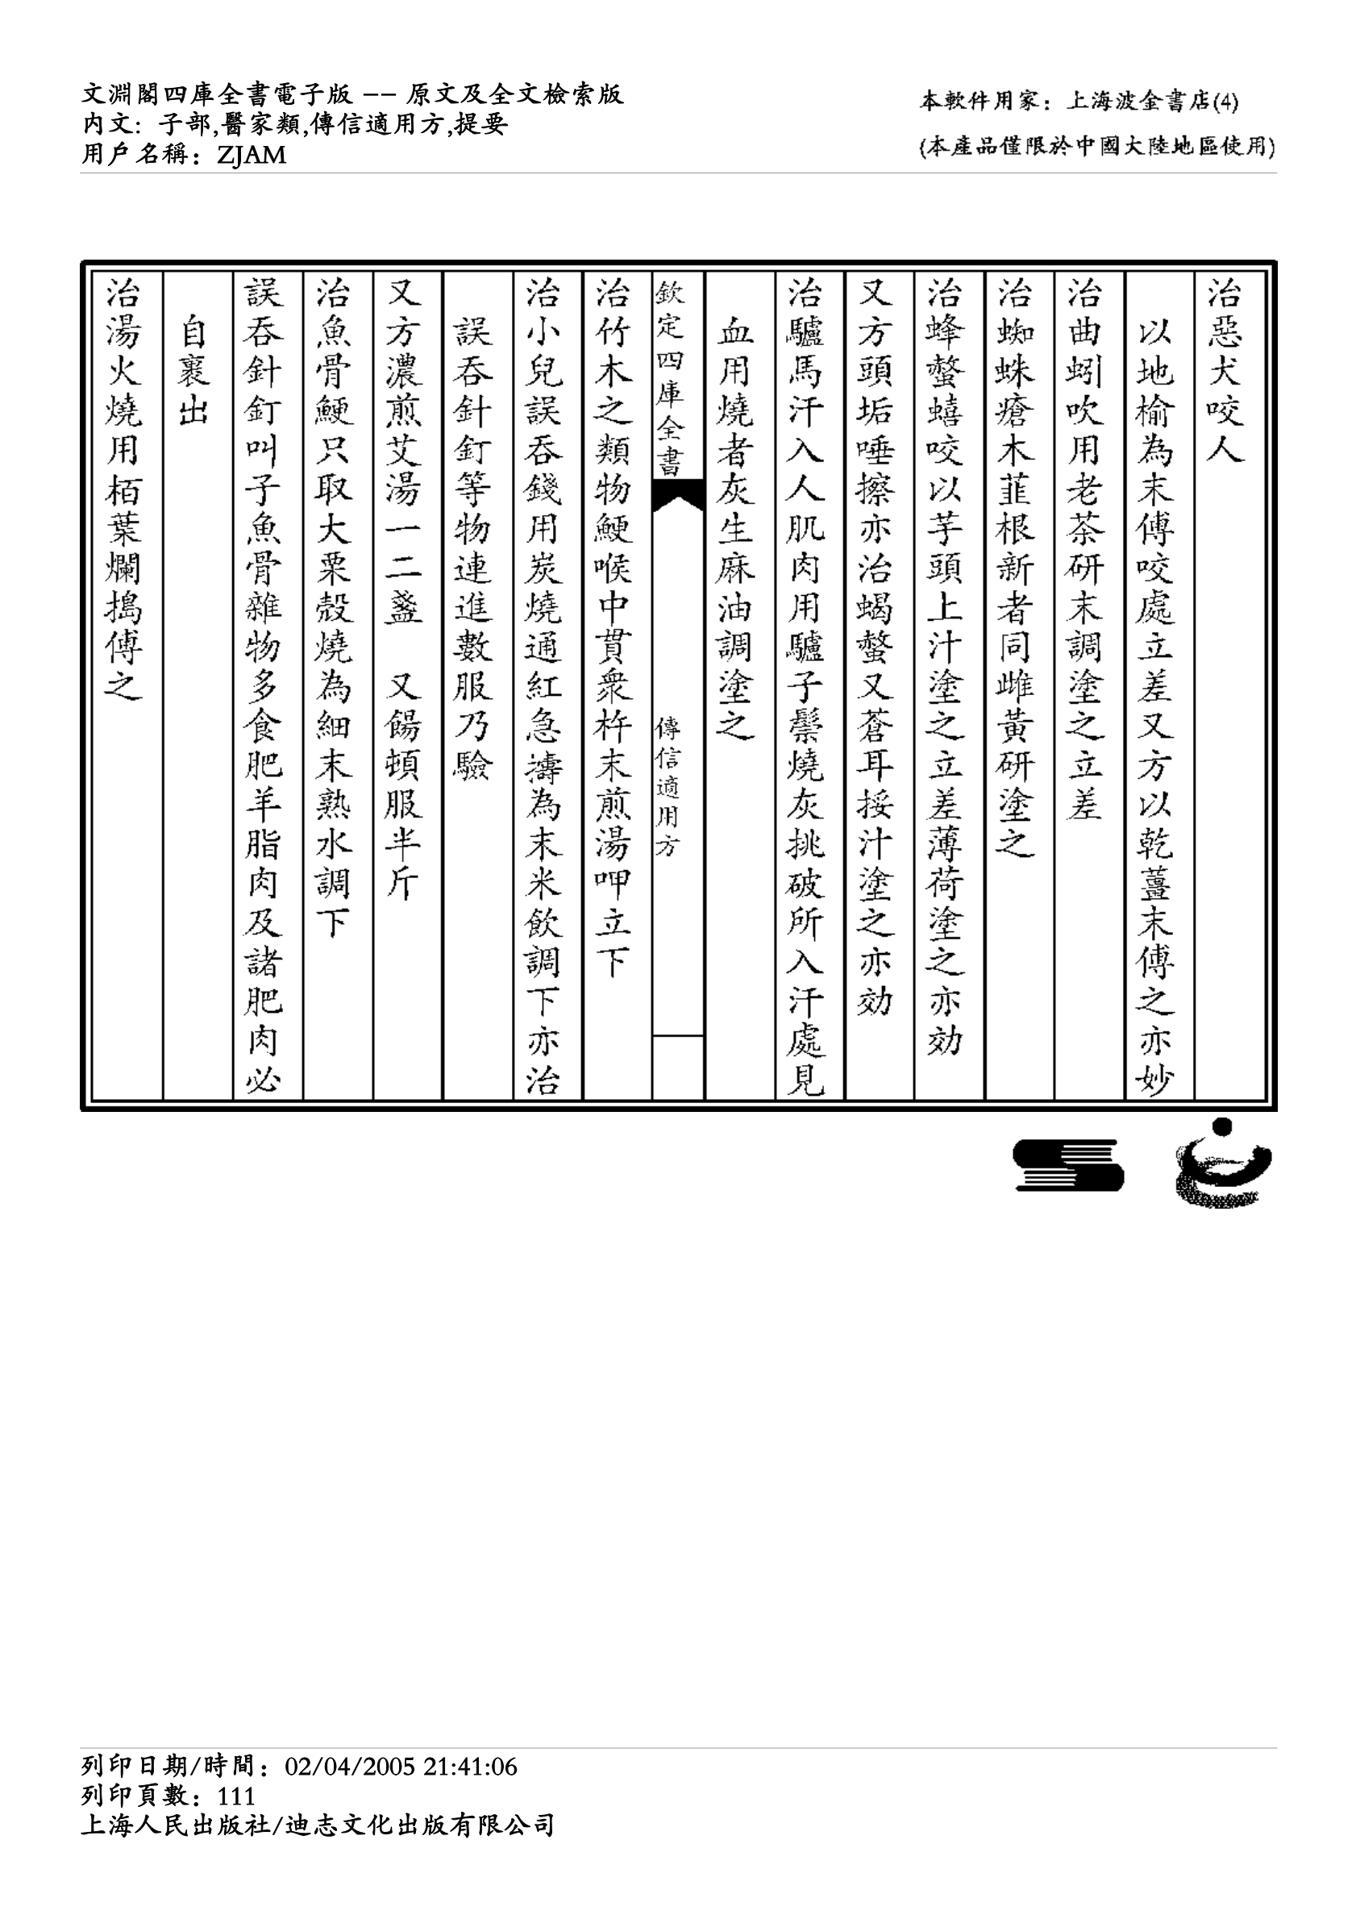 文淵閣四庫全書電子版 -- 原文及全文檢索版
内文: 子部,醫家類,傳信適用方,提要
用戶名稱: ZJAM
本軟件用家: 上海波金書店(4)
(本產品僅限於中國大陸地區使用)
治惡犬咬人
以地榆為末傅咬處立差又方以乾薑末傅之亦妙
治曲蚓吹用老茶研末調塗之立差
治蜘蛛瘡木韮根新者同雌黃研塗之
治蜂螫蟢咬以芋頭上汁塗之立差薄荷塗之亦効
又方頭垢唾擦亦治蝎螫又蒼耳挼汁塗之亦効
治驢馬汗入人肌肉用驢子鬃燒灰挑破所入汗處見
血用燒者灰生麻油調塗之
欽定四庫全書
傳信適用方
治竹木之類物鯁喉中貫衆杵末煎湯呷立下
治小兒誤吞錢用炭燒通紅急擣為末米飲調下亦治
誤吞針釘等物連進數服乃驗
又方濃煎艾湯一二盞 又餳頓服半斤
治魚骨鯁只取大栗殼燒為細末熟水調下
誤吞針釘叫子魚骨雜物多食肥羊脂肉及諸肥肉必
自裹出
治湯火燒用栢葉爛搗傅之
列印日期/時間: 02/04/2005 21:41:06
列印頁數: 111
上海人民出版社/迪志文化出版有限公司